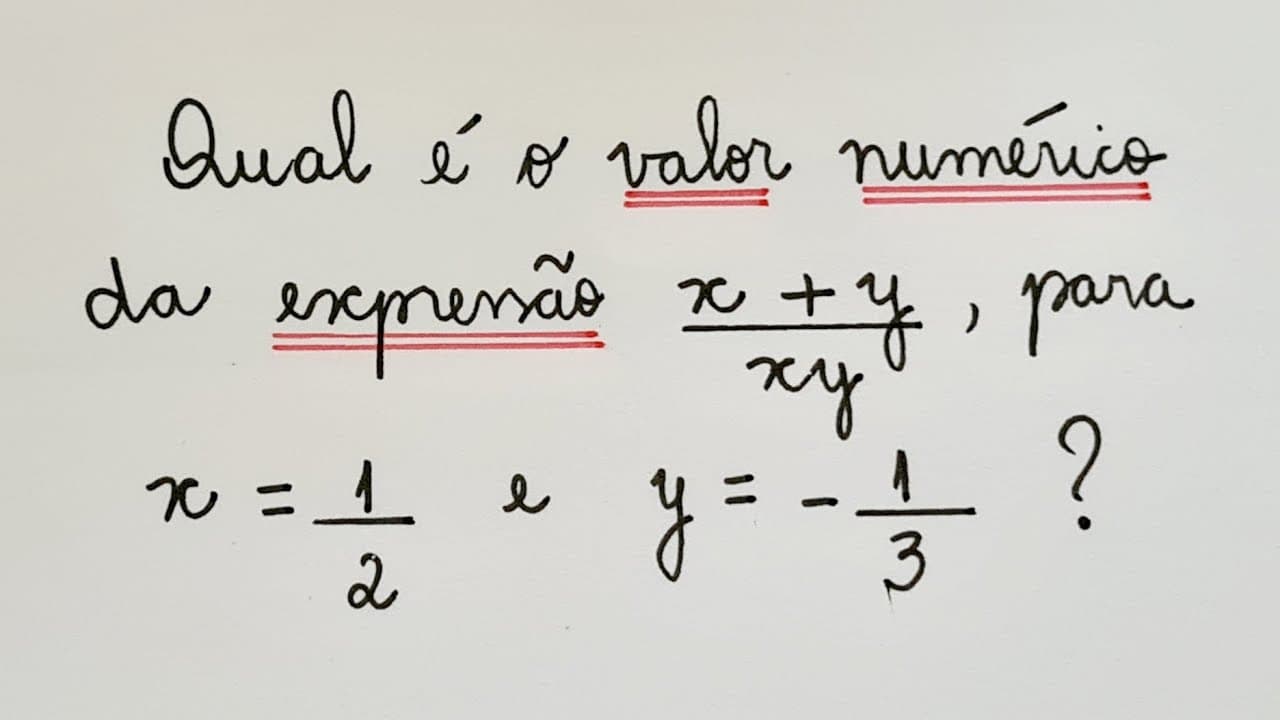 Qual é o valor numérico
da expressão x + y / xy , para
x = 1/2 e y = - 1/3 ?